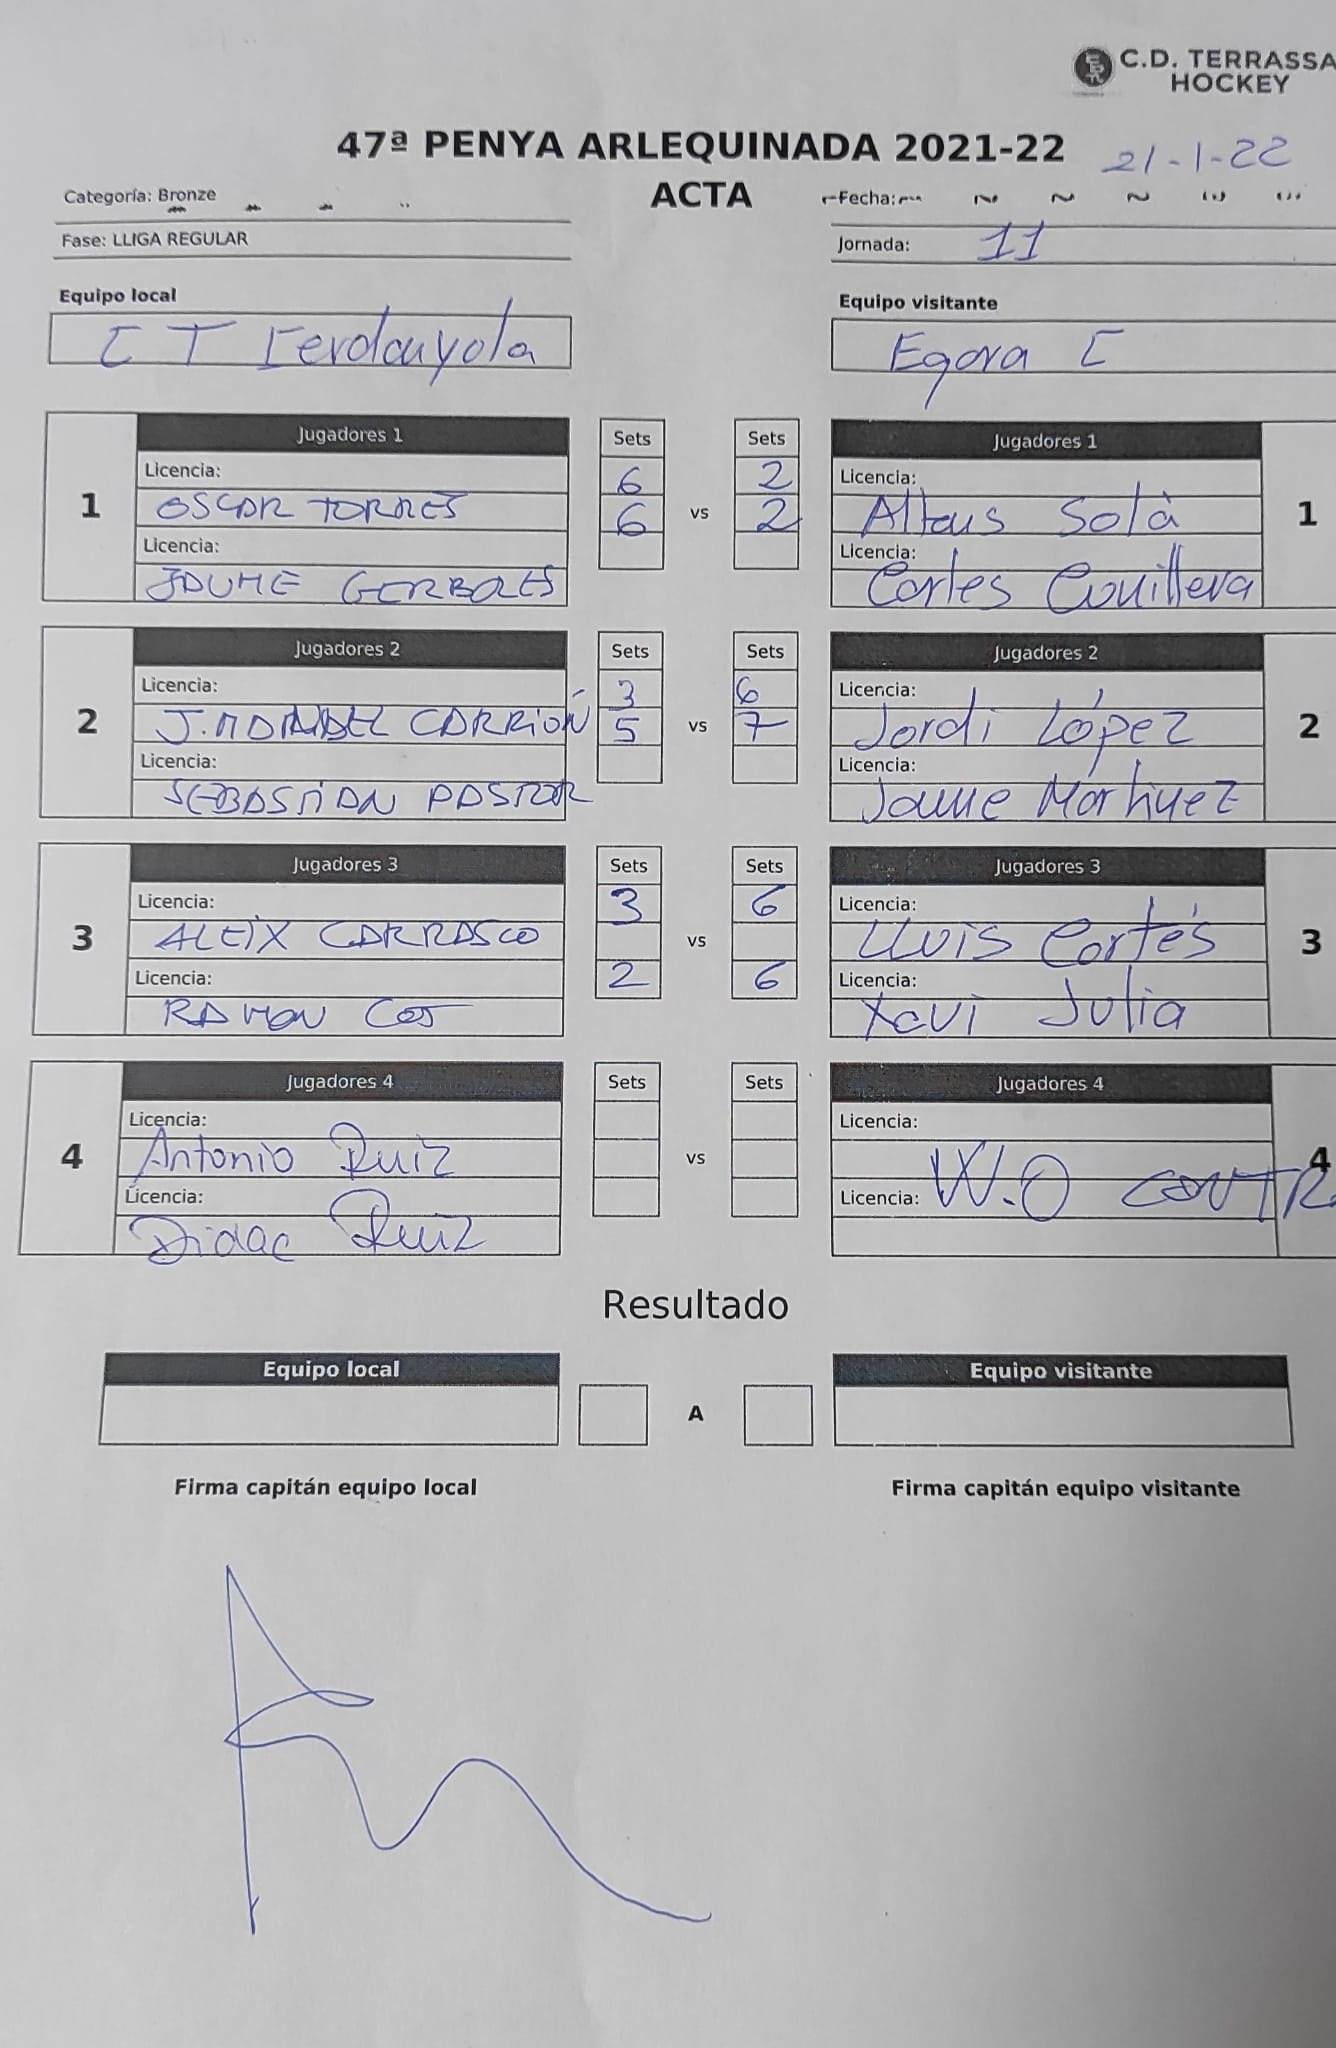 C.D. TERRASSA
HOCKEY
47ª PENYA ARLEQUINADA 2021-22 21-1-22
ACTA
Categoría: Bronze
Fecha:
Fase: LLIGA REGULAR
Jornada: 11
Equipo local
Equipo visitante
CT Cerdanyola
Egara C
1
Jugadores 1
Sets
Sets
Jugadores 1
1
Licencia:
6
2
Licencia:
OSCAR TORRES
6
vs
2
Alteus Solà
Licencia:
Licencia:
JAUME
Carles
2
Jugadores 2
Sets
Sets
Jugadores 2
2
Licencia:
3
6
Licencia:
J. MANUEL CARRIÓN
5
vs
7
Jordi López
Licencia:
Licencia:
SEBASTIAN PASTOR
Jaume Martinez
3
Jugadores 3
Sets
Sets
Jugadores 3
3
Licencia:
3
6
Licencia:
ALEIX CARRASCO
vs
Lluís Cortés
Licencia:
2
6
Licencia:
RAMON COS
Xavi Julia
4
Jugadores 4
Sets
Sets
Jugadores 4
4
Licencia:
Licencia:
Antonio Ruiz
vs
W.O CONTR
Licencia:
Licencia:
Didac Ruiz
Resultado
Equipo local
Equipo visitante
A
Firma capitán equipo local
Firma capitán equipo visitante